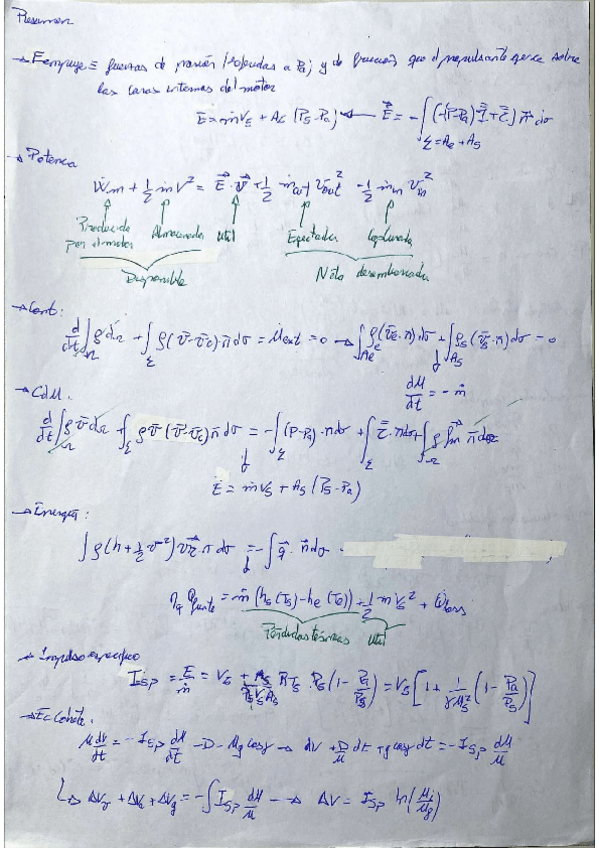 Resumen
→ Eempuje ≡ fuerzas de presión (referidas a Pa) y de fricción que el propulsante ejerce sobre
las caras internas del motor
E = ṁVs + As (Ps - Pa) ← E⃗ = -∫ (-(P-Pa) I̿ + τ̿) n⃗ dσ
Σ = Ae + As
→ Potencia
Ẇm + 1/2 ṁ V² = E⃗ · v⃗ + 1/2 ṁout Vout² - 1/2 ṁin Vin²
Producida por el motor Almacenada útil Eyectada Capturada
Disponible Neta desembarcada
→ Cont:
d/dt ∫Ω ρ dΩ + ∫Σ ρ(v̄ - v̄c)·n̄ dσ = Mext = 0 → ∫Ae ρe(v̄e·n)dσ + ∫As ρs(v̄s·n)dσ = 0
dM/dt = -ṁ
→ CdM.
d/dt ∫Ω ρ v̄ dΩ + ∫Σ ρ v̄ (v̄ - v̄c) n̄ dσ = -∫Σ (P-Pa)·n dσ + ∫Σ τ̿·n dσ + ∫Ω ρ fm
E = ṁVs + As (Ps - Pa)
→ Energía:
∫ ρ(h + 1/2 v²) v·n dσ = -∫ q⃗ · n̄ dσ
ηq Qfuente = ṁ (hs(Ts) - he(Te)) + 1/2 ṁ Vs² + Q̇loss
Pérdidas térmicas útil
→ Impulso específico
Isp = E/ṁ = Vs + As/(ρs Vs As) RTs · Ps (1 - Pa/Ps) = Vs [1 + 1/(γMs²) (1 - Pa/Ps)]
→ Ec Cohete.
M dV/dt = -Isp dM/dt - D - Mg cosγ → dV + D/M dt + g cosγ dt = -Isp dM/M
↳ ΔVv + ΔVa + ΔVg = -∫ Isp dM/M → ΔV = Isp ln(Mi/Mf)